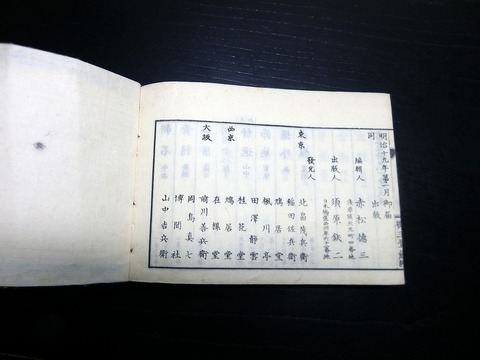 明治十九年第一月御届
同 出版
編輯人 赤松徳三
出版人 須原鉄二
發兌人
東京 北畠茂兵衛
稲田佐兵衛
鳩居堂
楓川亭
田澤静雲
西京 桂花堂
鳩居堂
在樸堂
大坂 前川善兵衛
岡島真七
博聞社
山中吉兵衛